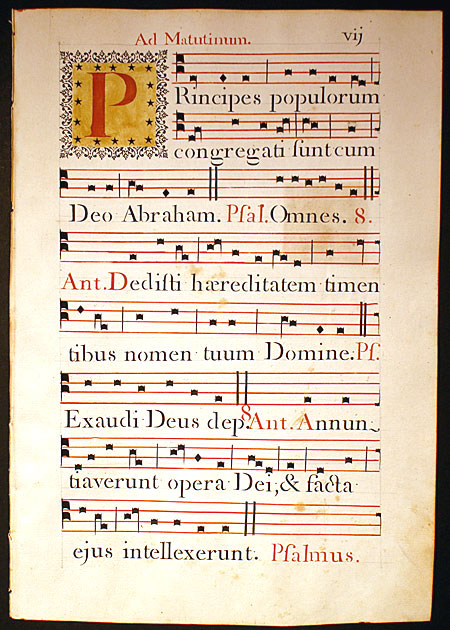 Ad Matutinum. vij
PRincipes populorum
congregati ſunt cum
Deo Abraham. Pſal. Omnes. 8.
Ant. Dediſti hæreditatem timen
tibus nomen tuum Domine. Pſ.
Exaudi Deus dep. 8 Ant. Annun
tiaverunt opera Dei; & facta
ejus intellexerunt. Pſalmus.